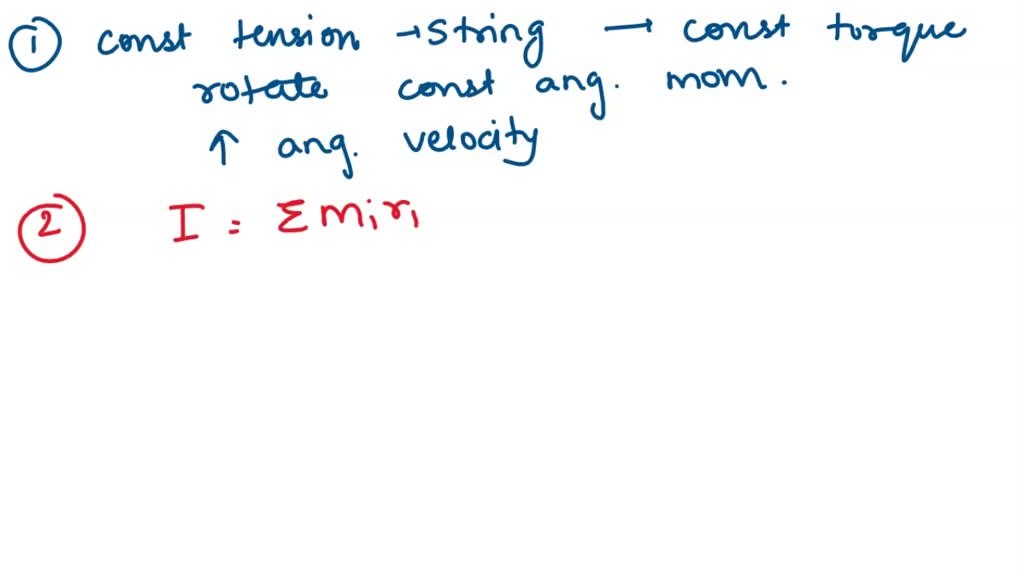 ① const tension → string → const torque
rotate const ang. mom.
↑ ang. velocity
② I = Σ miri